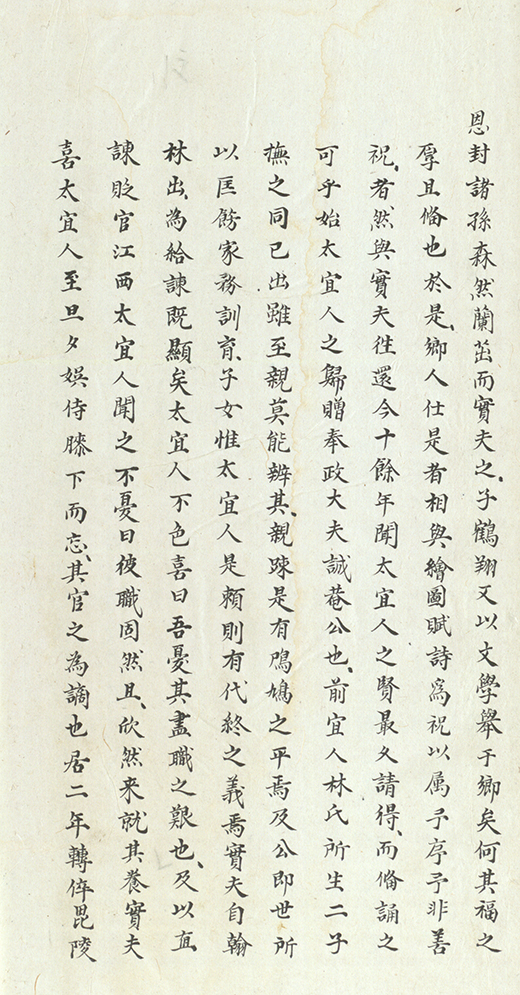 恩封諸孫森然蘭茁而實夫之子鶴翔又以文學舉于鄉矣何其福之
厚且偹也於是鄉人仕是者相與繪圖賦詩爲祝以属予序予非善
祝者然與實夫徃還今十餘年聞太宜人之賢最乆請得而偹誦之
可乎始太宜人之歸贈奉政大夫誠菴公也前宜人林氏所生二子
撫之同已出雖至親莫能辨其親踈是有鳲鳩之平焉及公即世所
以匡飭家務訓育子女惟太宜人是頼則有代終之義焉實夫自翰
林出為給諫既顯矣太宜人不色喜曰吾憂其盡職之艱也及以直
諫貶官江西太宜人聞之不憂曰彼職固然且欣然来就其養實夫
喜太宜人至旦夕娯侍膝下而忘其官之為謫也居二年轉倅毘陵